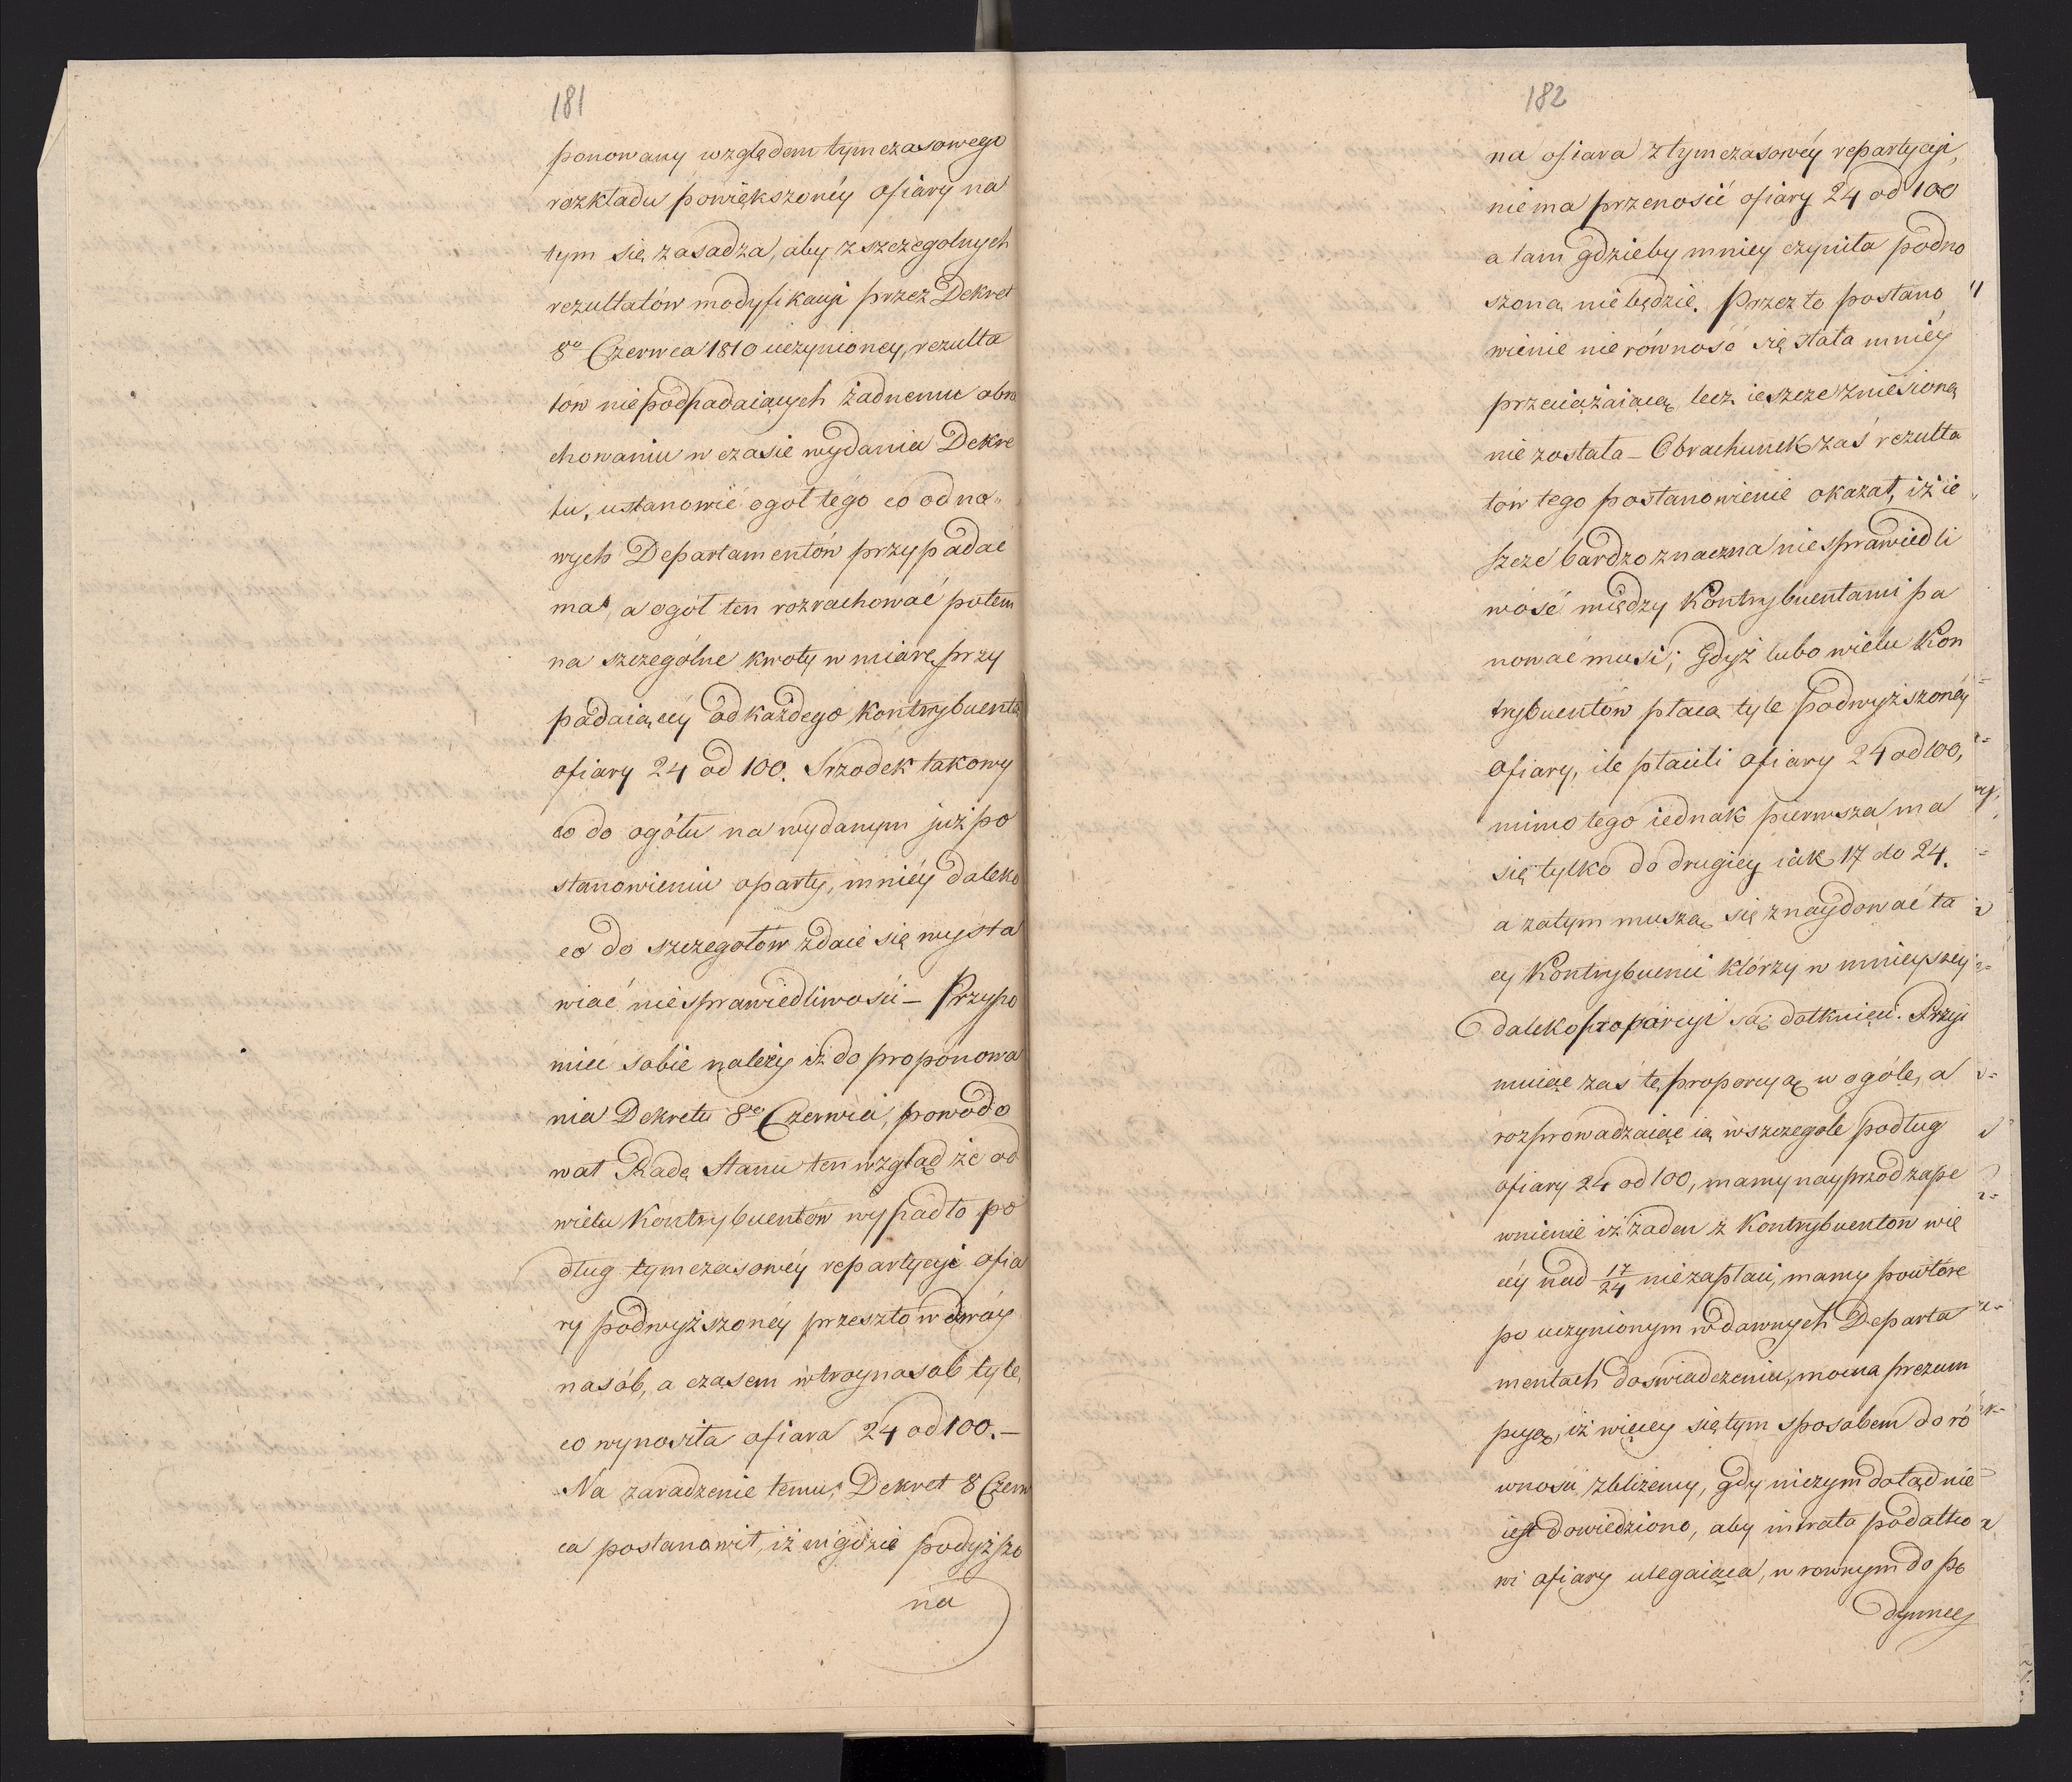 181
ponowany względem tymczasowego
rozkładu powiększonéy ofiary na
tym się zasadza, aby z szczegolnych
rezultatów modyfikacyi przez Dekret
8º Czerwca 1810 uczynioney, rezulta
tów niepodpadaiących żadnemu obra
chowaniu w czasie wydania Dekre
tu, ustanowić ogoł tego co od no„
wych Departamentów przypadać
ma, a ogół ten rozrachować potem
na szczególne kwoty w miarę przy
padaiącéy od każdego Kontrybuenta
ofiary 24 od 100. Srzodek takowy
co do ogółu na wydanym już po
stanowieniu oparty, mniéy daleko
co do szczegołów zdaie się wysta
wiać niesprawiedliwości – Przypo
mieć sobie należy iż do proponowa
nia Dekretu 8go Czerwca, powodo
wał Radę Stanu ten wzgląd że od
wielu Kontrybuentów wypadło po
dług tymczasowéy repartycyi ofia
ry podwyższonéy przeszło w dwóy
nasób, a czasem w troynasob tyle,
co wynosiła ofiara 24 od 100. –
Na zaradzenie temu, Dekret 8 Czerw
ca postanowił, iż nigdzie podyższo
na
182
na ofiara z tymczasowéy repartycyi,
niema przenosić ofiary 24 od 100
a tam gdzieby mniey czyniła podno
szoną niebędzie. Przez to postano
wienie nierówność się stała mniéy
przeciążaiącą, lecz ieszcze zniesioną
nie została – Obrachunek zaś rezulta
tów tego postanowienie okazał, iż ie
szcze bardzo znaczna niesprawiedli
wość między Kontrybuentami pa
nować musi; Gdyż lubo wielu Kon
trybuentów płacą tyle podwyższonéy
ofiary, ile płacili ofiary 24 od 100,
mimo tego iednak pierwsza ma
się tylko do drugiey iak 17 do 24.
a zatym muszą się znaydować ta
cy Kontrybuenci którzy w mnieyszey
daleko proporcyi są dotknięci. Przyi
muiąc zaś tę proporcyą w ogóle, a
rozprowadzaiąc ią w szczegole podług
ofiary 24 od 100, mamy nayprzod zape
wnienie iż żaden z Kontrybuentow wię
céy nad 17/24 niezapłaci, mamy powtóre
po uczynionym w dawnych Departa
mentach doswiadczeniu, mocną prezum
pcyą, iż więcey się tym sposobem do ró
wności zbliżemy, gdy niczym dotąd nie
iest dowiedziono, aby intrata podatko
wi ofiary ulegaiąca, w rownym do po
dymney